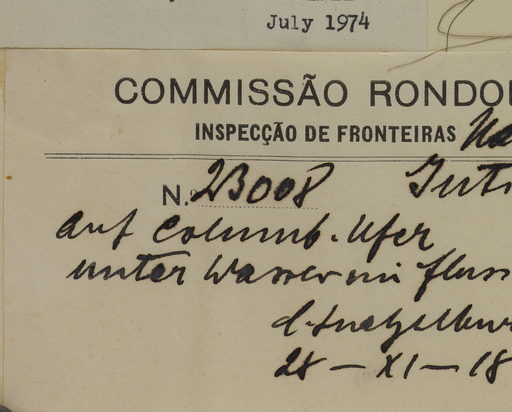 July 1974
COMMISSÃO RONDO
INSPECÇÃO DE FRONTEIRAS
N.º 23008
auf Columb. Ufer
unter Wasser im fluss
28 – XI – 18